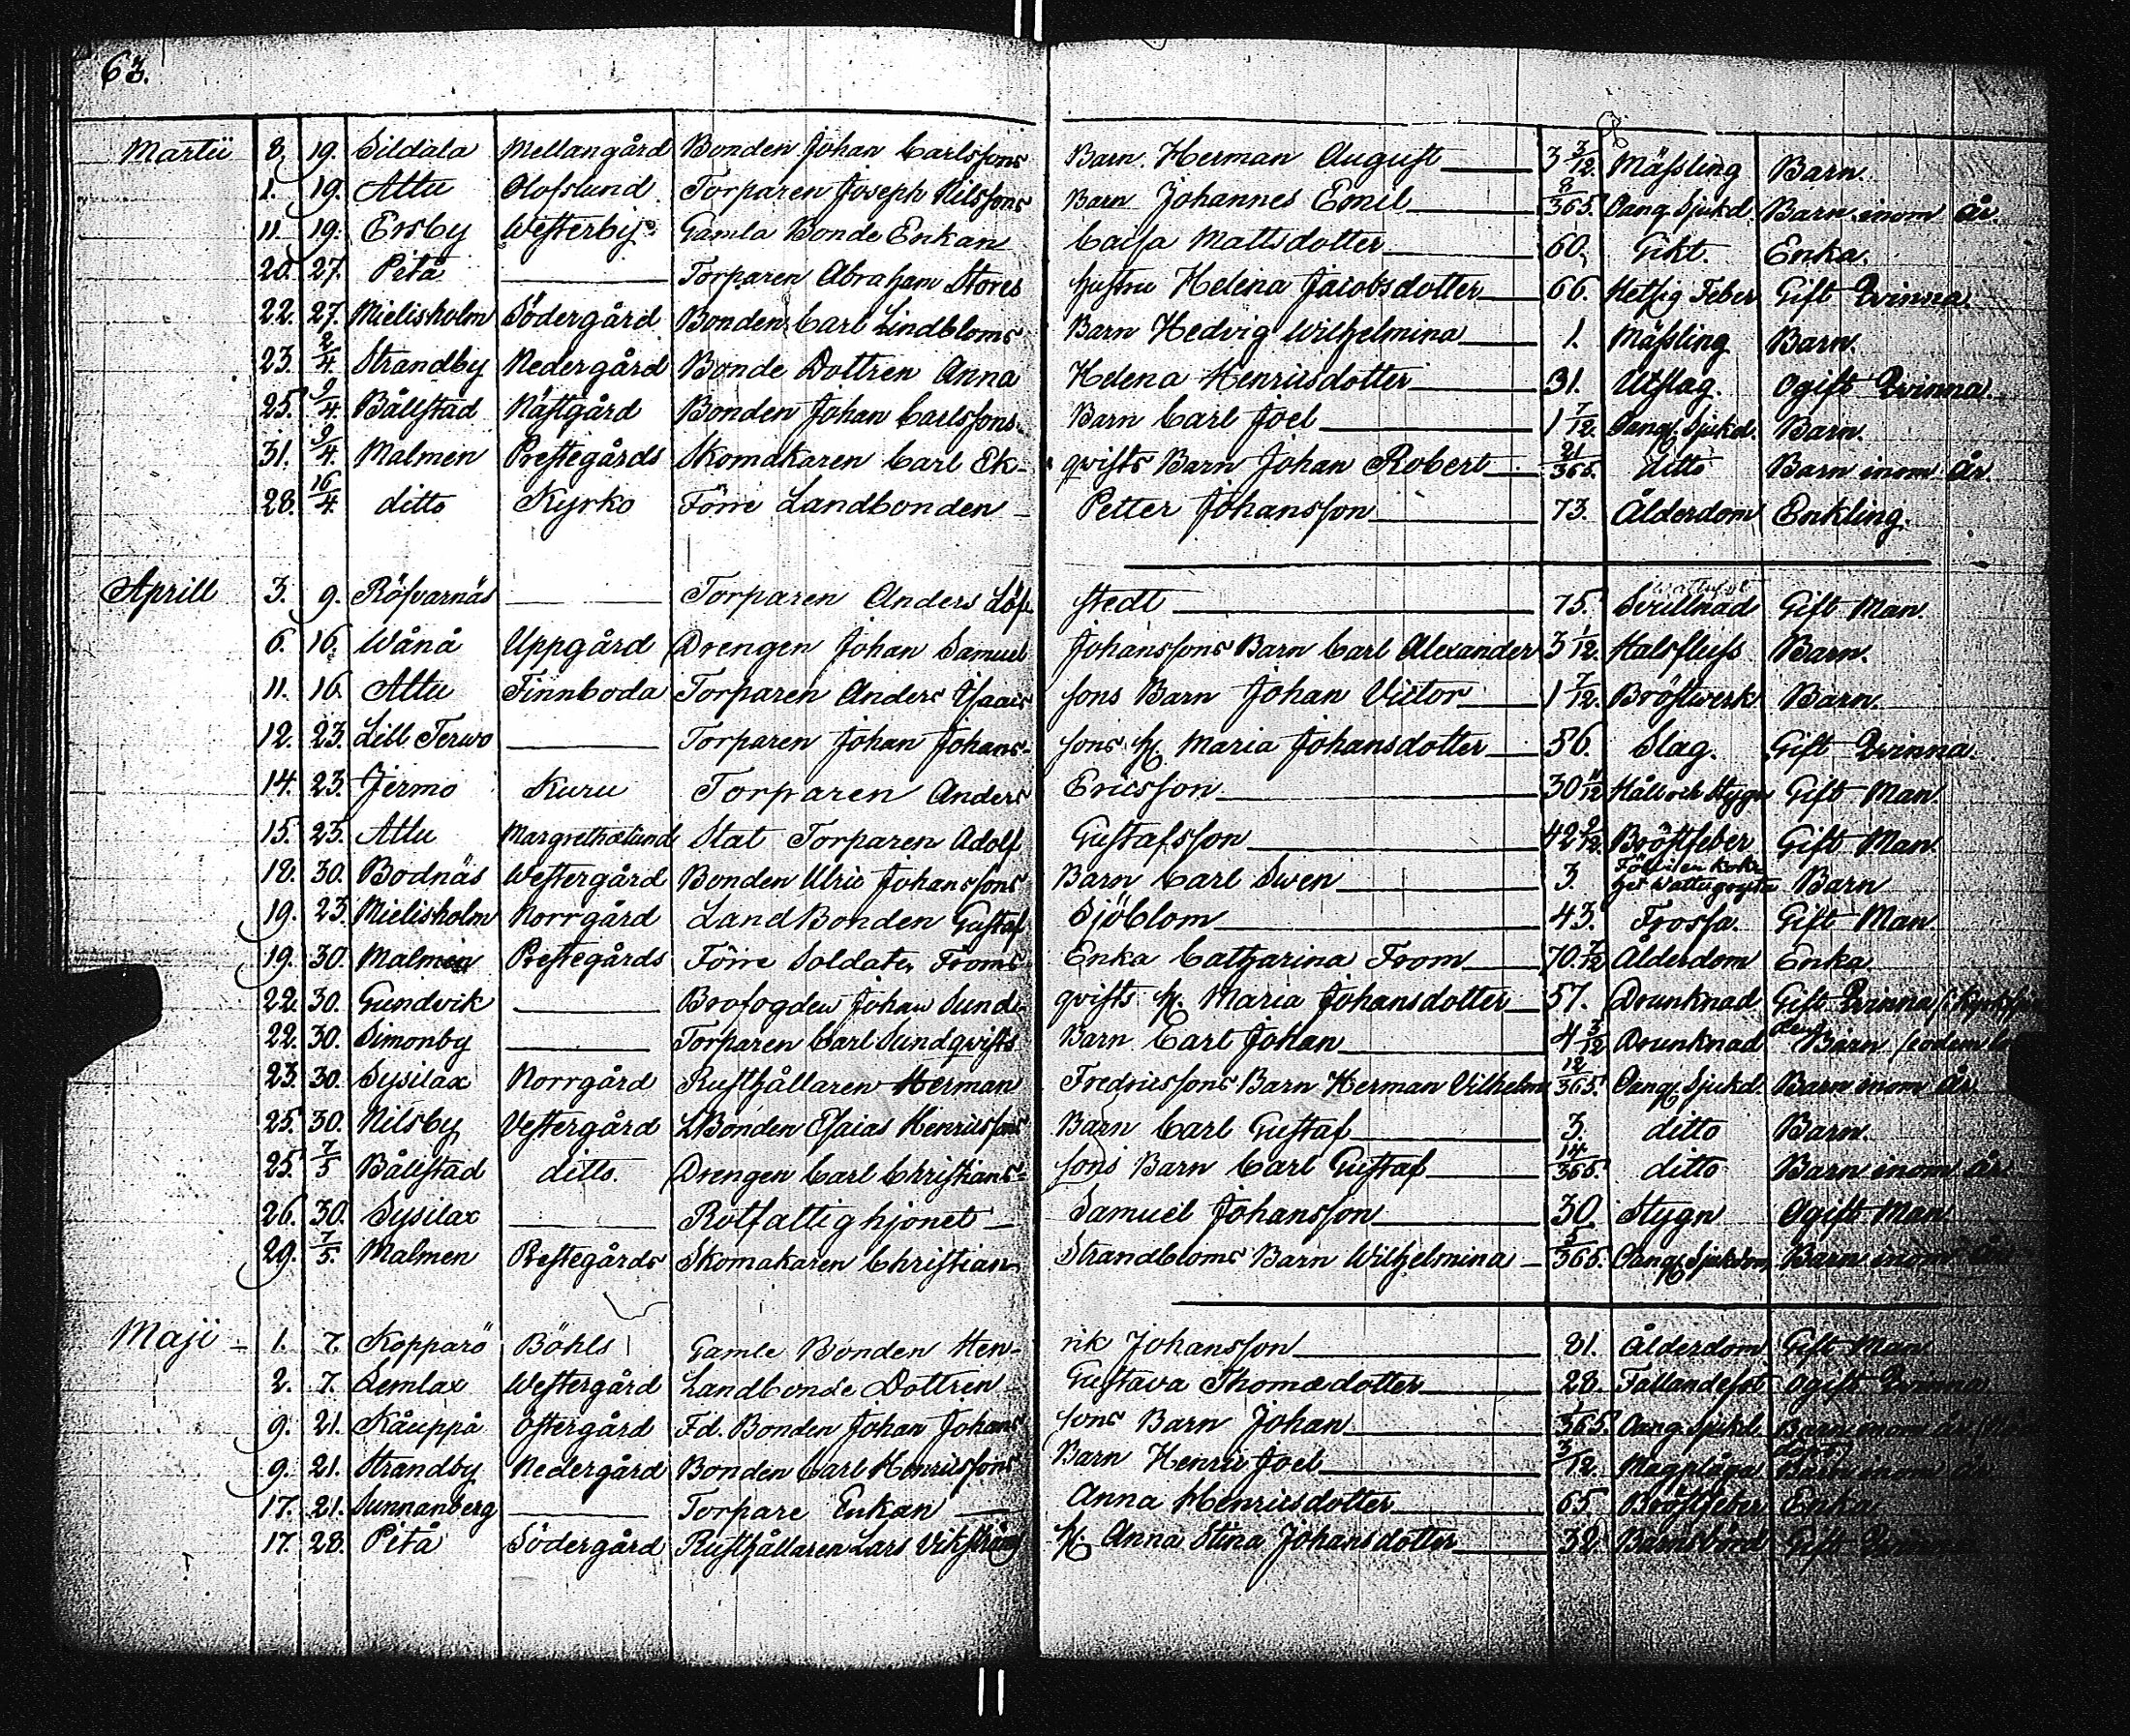 63.
Martii 8. 19. Sildala Mellangård Bonden Johan Carlssons Barn Herman August 3 3/12. Mässling Barn.
1. 19. Attu Olofslund Torparen Joseph Nilssons Barn Johannes Emil 8/365. Oang. Sjukd. Barn inom år.
11. 19. Ersby Westerby Gamla Bonde Enkan Caisa Mattsdotter 60. Gikt. Enka.
20. 27. Pitå Torparen Abraham Stores hustru Helena Jacobsdotter 66. Hetsig Feber Gift Qvinna.
22. 27. Mielisholm Södergård Bonden Carl Lindbloms Barn Hedvig Wilhelmina 1. Mässling Barn.
23. 2/4. Strandby Nedergård Bonde Dottren Anna Helena Henricsdotter 31. Utslag. Ogift Qvinna.
25. 9/4. Bållstad Nästgård Bonden Johan Carlssons Barn Carl Joel 1 7/12. Oang. Sjukd. Barn.
31. 9/4. Malmen Prestegårds Skomakaren Carl Ek- qvists Barn Johan Robert 21/365. ditto Barn inom år.
28. 16/4. ditto Kyrko Förre Landbonden Petter Johansson 73. Ålderdom Enkling.
Aprill 3. 9. Röfvarnäs Torparen Anders Löf- stedt 75. Svullnad Gift Man.
6. 16. Wånå Uppgård Drengen Johan Samuel Johanssons Barn Carl Alexander 3 1/12. Halsfluss Barn.
11. 16. Attu Finnboda Torparen Anders Isaacs sons Barn Johan Victor 1 7/12. Bröstwerk Barn.
12. 23. Lill Terwo Torparen Johan Johans- sons H. Maria Johansdotter 56. Slag. Gift Qvinna.
14. 23. Jermo Kuru Torparen Anders Ericsson 30 11/12 Håll och Stygn Gift Man.
15. 23. Attu Margrethælund Stat Torparen Adolf Gustafsson 42 9/12. Bröstfeber Gift Man.
18. 30. Bodnäs Westergård Bonden Ulric Johanssons Barn Carl Swen 3. Barn
19. 23. Mielisholm Norrgård LandBonden Gustaf Sjöblom 43. Frossa. Gift Man.
19. 30. Malmen Prestegårds Förre Soldaten Froms Enka Catharina From 70. 7/12 Ålderdom Enka.
22. 30. Gundvik Brofogden Johan Sund- qvists H. Maria Johansdotter 57. Drunknad. Gift Qvinna
22. 30. Simonby Torparen Carl Sundqvists Barn Carl Johan 4 3/12 Drunknad Barn
23. 30. Sysilax Norrgård Rusthållaren Herman Fredricssons Barn Herman Vilhelm 12/365. Oang. Sjukd. Barn inom år
25. 30. Nilsby Vestergård LBonden Esaias Henricssons Barn Carl Gustaf 3. ditto Barn.
25. 7/5 Bållstad ditto. Drengen Carl Christians- sons Barn Carl Gustaf 14/365. ditto Barn inom år
26. 30. Sysilax Rotfattighjonet Samuel Johansson 30 Stygn Ogift Man
29. 7/5. Malmen Prestegårds Skomakaren Christian Strandbloms Barn Wilhelmina 5/365. Oang. Sjukdom Barn inom år
Maji 1. 7. Kopparö Böhls Gamle Bonden Hen- rik Johansson 81. Ålderdom Gift Man
2. 7. Lemlax Westergård Landbonde Dottren Gustava Thomædotter 28. Fallandesot Ogift Qvinna.
9. 21. Kåuppå Östergård Fd. Bonden Johan Johans sons Barn Johan 1/365. Oang. Sjukd. Barn inom år
9. 21. Strandby Nedergård Bonden Carl Henricssons Barn Henric Joel 3/12. Magplåga Barn inom år
17. 21. Sunnanberg Torpare Enkan Anna Henricsdotter 65 Bröstfeber Enka.
17. 28. Pitå Södergård Rusthållaren Lars Vikströms H. Anna Stina Johansdotter 32. Barnsbörd Gift Qvinna